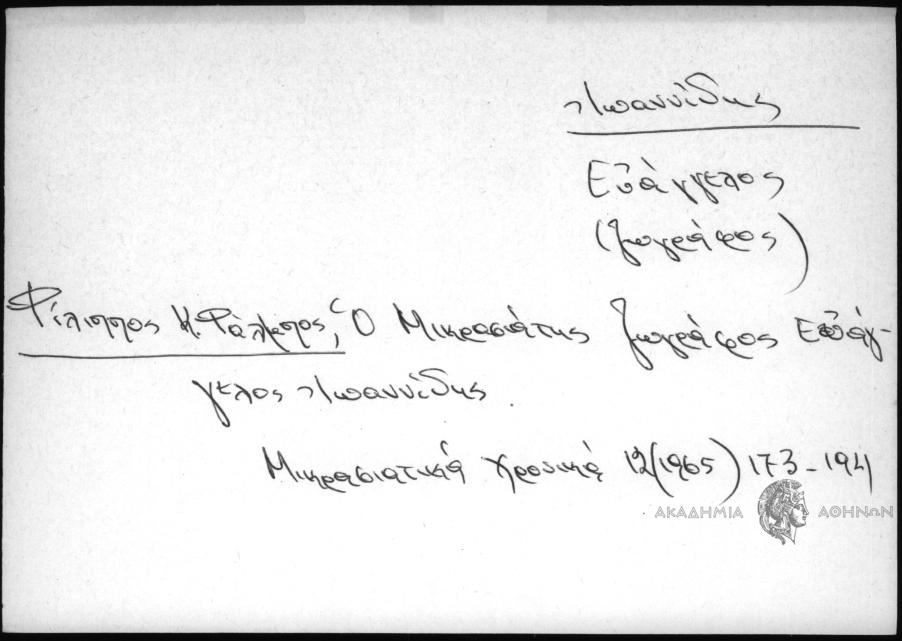 Ἰωαννίδης
Εὐάγγελος
(ζωγράφος)
Φίλιππος Κ. Φάλμπος, Ὁ Μικρασιάτης ζωγράφος Εὐάγ-
γελος Ἰωαννίδης.
Μικρασιατικά Χρονικά 12 (1965) 173-194
ΑΚΑΔΗΜΙΑ ΑΘΗΝΩΝ